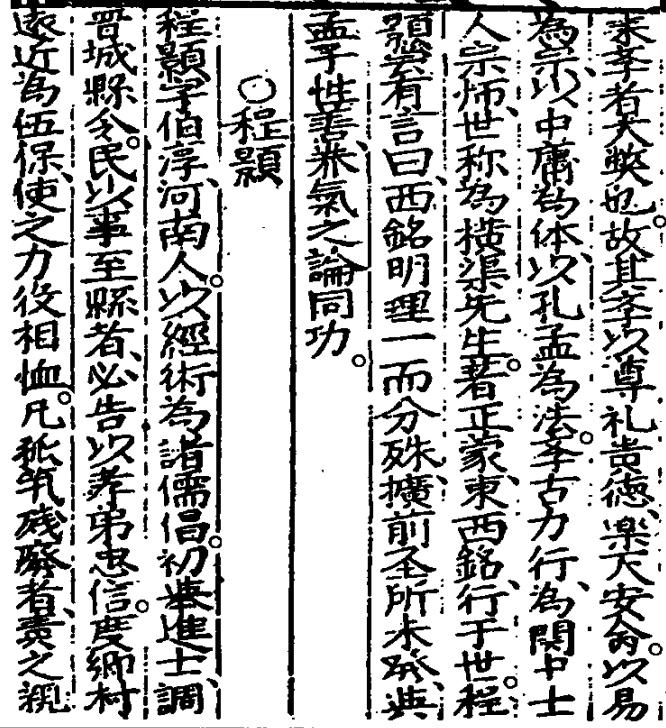 来学者大弊也。故其学以尊礼贵徳、楽天安命。以易
為宗、以中庸為体、以孔孟為法。学古力行、為関中士
人宗师、世称為横渠先生。著正蒙、東西銘、行于世。程
顥嘗有言曰、西銘明理一而分殊、擴前圣所未發、與
孟子性善养氣之論同功。
〇程顥
程顥、字伯淳、河南人。以經術為諸儒倡。初举進士、調
晋城縣令。民以事至縣者、必告以孝弟忠信。度鄉村
遠近為伍保、使之力役相恤。凡孤茕残廢者、责之親